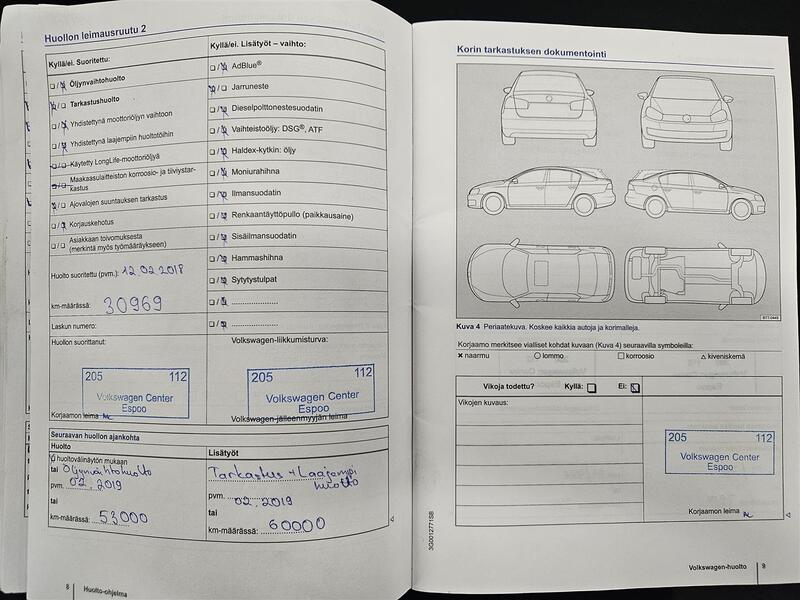 Huollon leimausruutu 2
Kyllä/ei. Suoritettu:
Öljynvaihtohuolto
Tarkastushuolto
Yhdistettynä moottoriöljyn vaihtoon
Yhdistettynä laajempiin huoltotöihin
Käytetty LongLife-moottoriöljyä
Maakaasulaitteiston korroosio- ja tiiviystar-
kastus
Ajovalojen suuntauksen tarkastus
Korjauskehotus
Asiakkaan toivomuksesta
(merkintä myös työmääräykseen)
Huolto suoritettu (pvm.): 12 02 2018
km-määrässä: 30969
Laskun numero:
Huollon suorittanut:
205 112
Volkswagen Center
Espoo
Korjaamon leima
Kyllä/ei. Lisätyöt – vaihto:
AdBlue®
Jarruneste
Dieselpolttonestesuodatin
Vaihteistoöljy: DSG®, ATF
Haldex-kytkin: öljy
Moniurahihna
Ilmansuodatin
Renkaantäyttöpullo (paikkausaine)
Sisäilmansuodatin
Hammashihna
Sytytystulpat
Volkswagen-liikkumisturva:
205 112
Volkswagen Center
Espoo
Volkswagen-jälleenmyyjän leima
Seuraavan huollon ajankohta
Huolto
huoltovälinäytön mukaan
tai Öljynvaihtohuolto
pvm. 02.2019
tai
km-määrässä: 53000
Lisätyöt
Tarkastus + Laajempi
huolto
pvm. 02.2019
tai
km-määrässä: 60000
8 Huolto-ohjelma
Korin tarkastuksen dokumentointi
BTT-0449
Kuva 4 Periaatekuva. Koskee kaikkia autoja ja korimalleja.
Korjaamo merkitsee vialliset kohdat kuvaan (Kuva 4) seuraavilla symboleilla:
naarmu lommo korroosio kiveniskemä
Vikoja todettu? Kyllä: Ei:
Vikojen kuvaus:
205 112
Volkswagen Center
Espoo
Korjaamon leima
3G0012771SB
Volkswagen-huolto 9